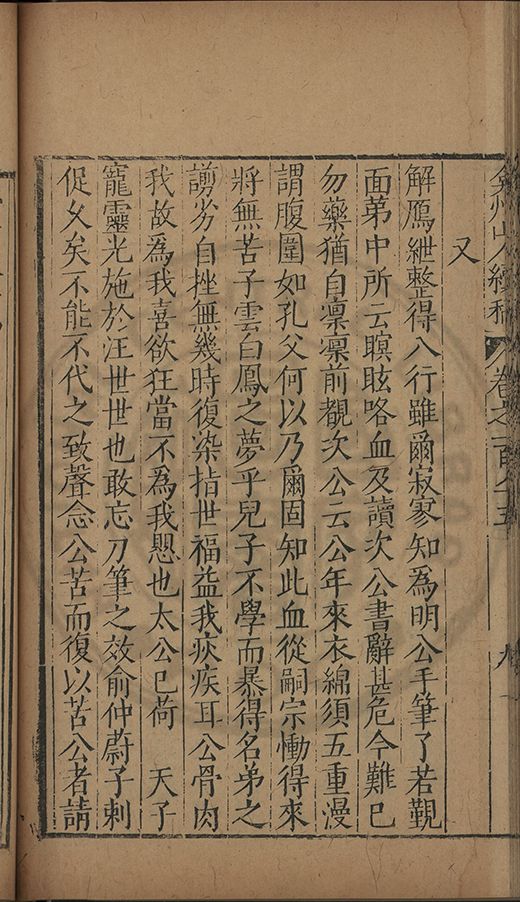 弇州山人續稿 卷之一百八十五 九
又
解鴈紲整得八行雖爾寂寥知為明公手筆了若覿
面苐中所云瞑眩咯血及讀次公書辭甚危今難已
勿藥猶自凛凛前覩次公云公年來衣綿須五重漫
謂腹圍如孔父何以乃爾固知此血從嗣宗慟得來
將無苦子雲白鳳之夢乎兒子不學而暴得名弟之
謭劣自挫無幾時復染指世福益我疢疾耳公骨肉
我故為我喜欲狂當不為我愳也太公已荷 天子
寵靈光施於汪世世也敢忘刀筆之效俞仲蔚子刺
促父矣不能不代之致聲念公苦而復以苦公者請